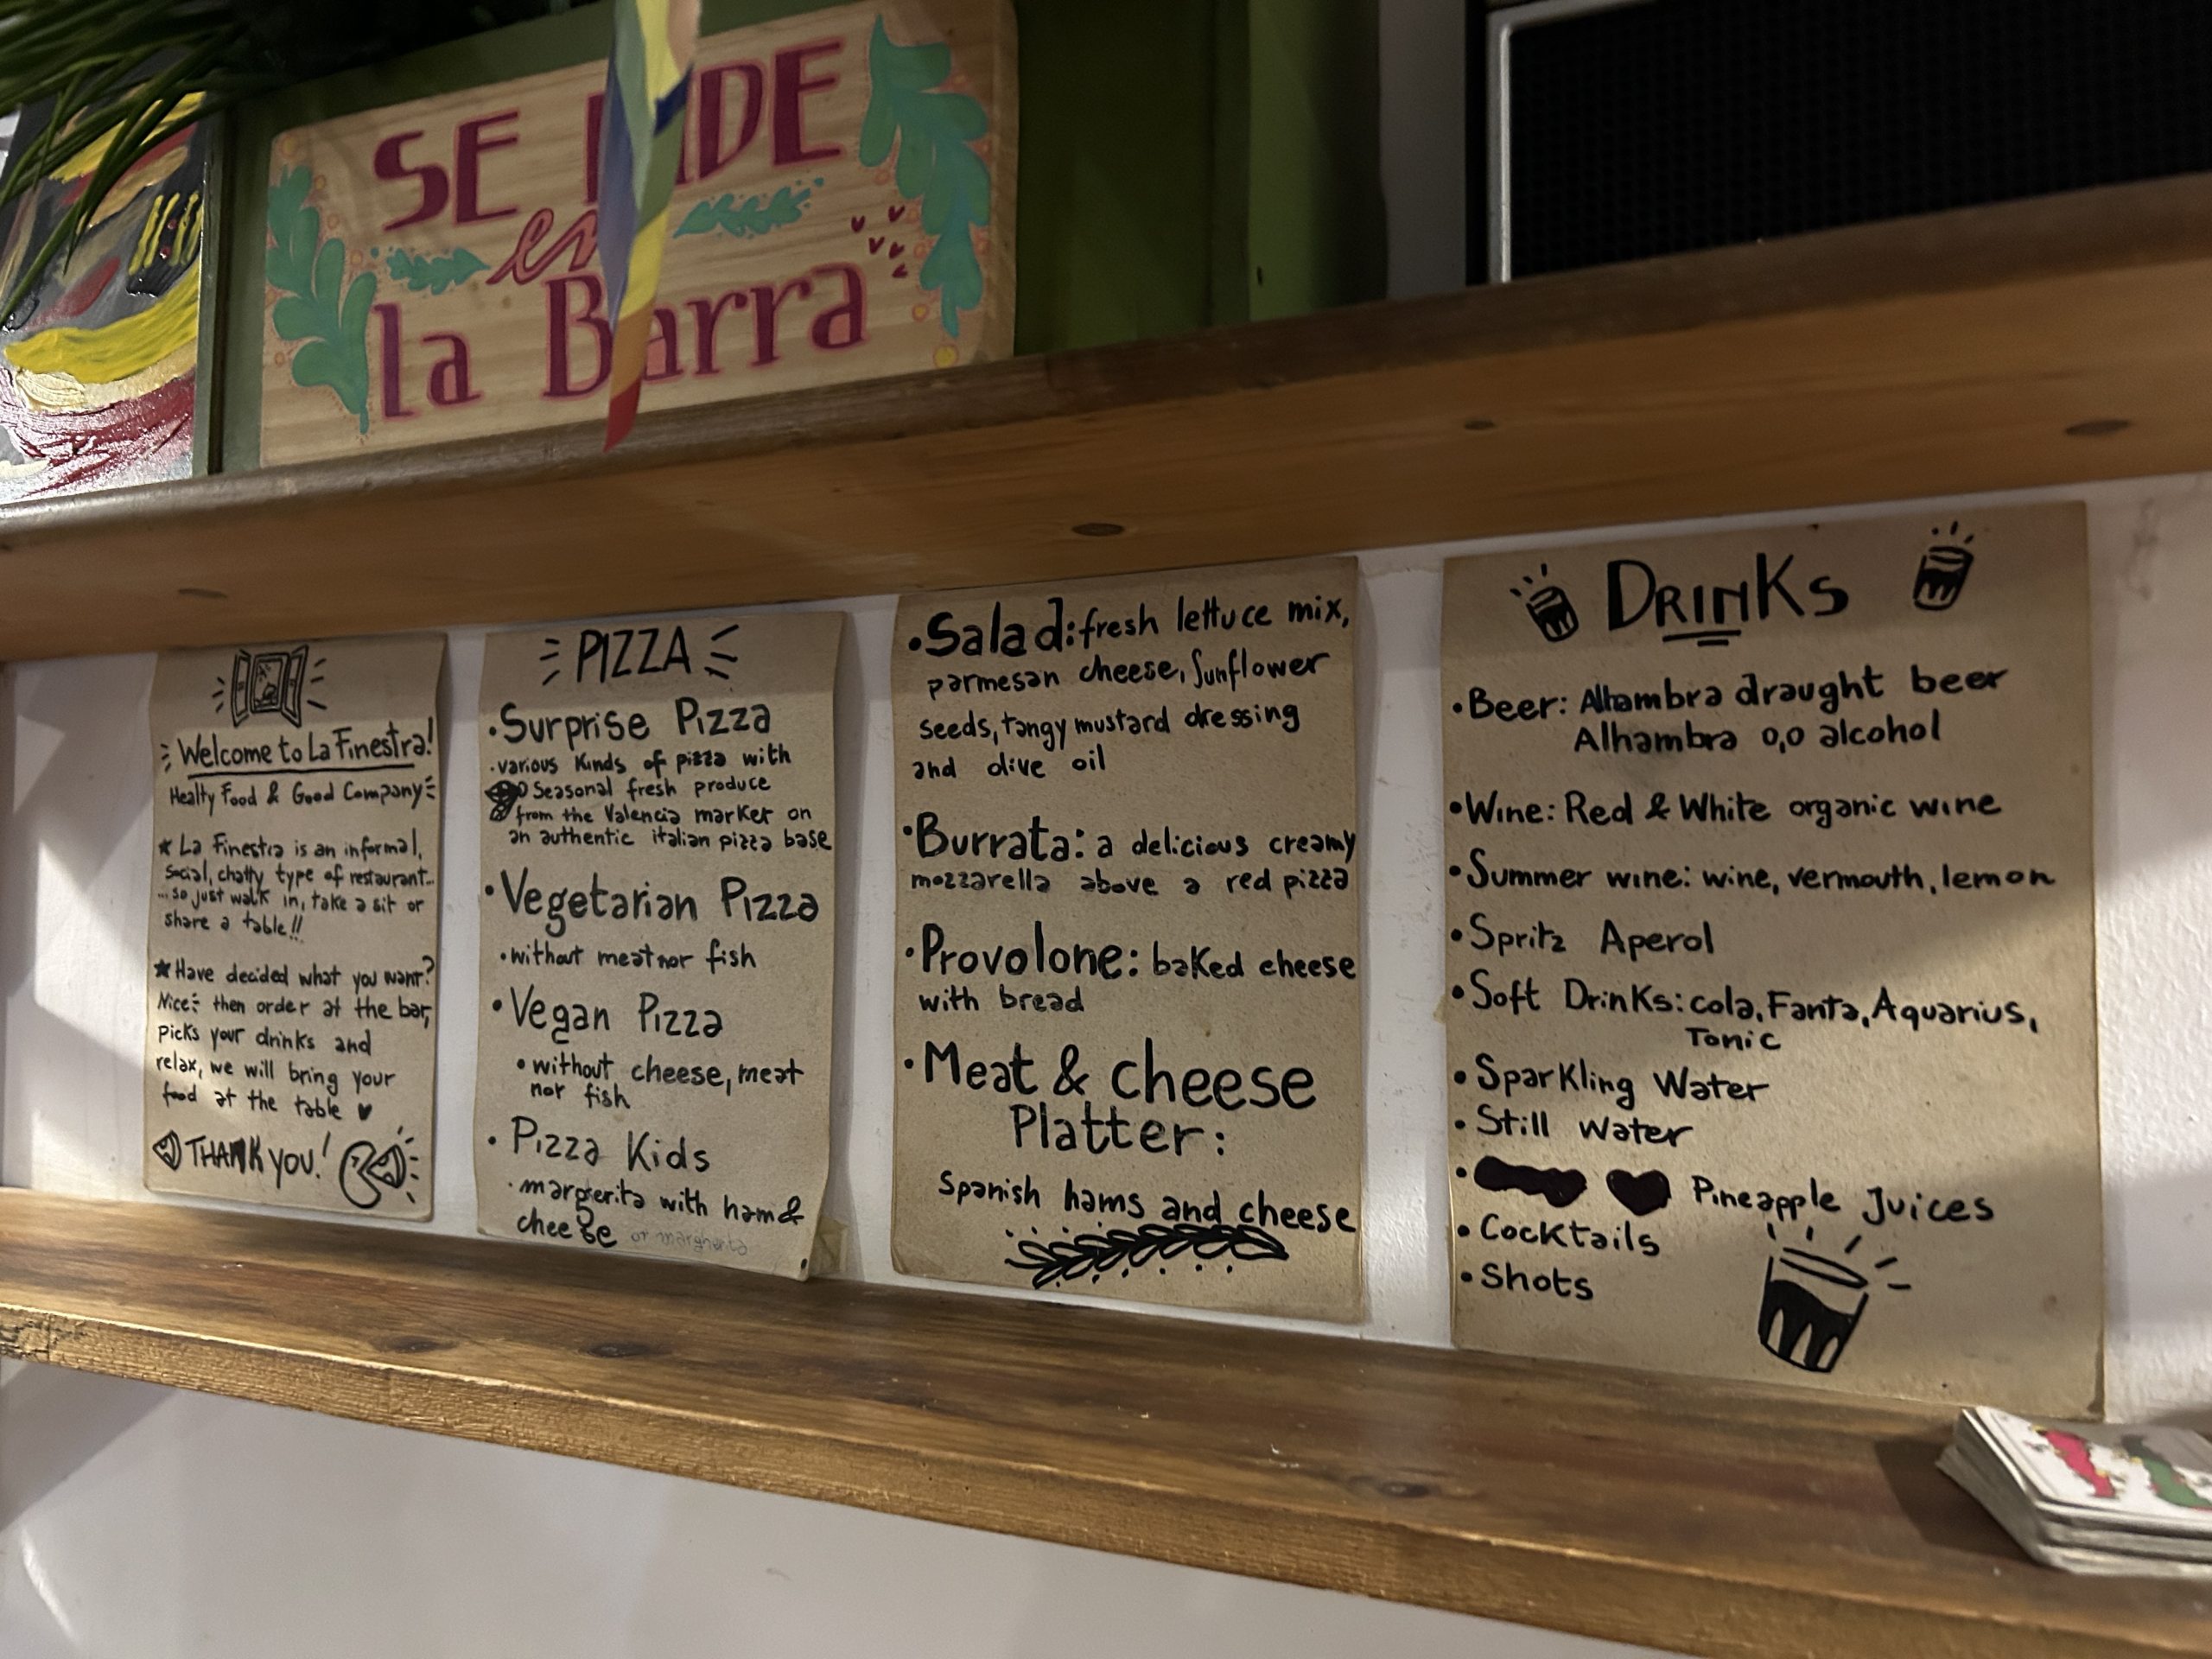 SE PIDE
en
la Barra
Welcome to La Finestra!
Healty Food & Good Company
★ La Finestra is an informal,
social, chatty type of restaurant...
...so just walk in, take a sit or
share a table!!
★ Have decided what you want?
Nice! then order at the bar,
picks your drinks and
relax, we will bring your
food at the table ♥
THANK YOU!
PIZZA
• Surprise Pizza
• various kinds of pizza with
Seasonal fresh produce
from the Valencia market on
an authentic italian pizza base
• Vegetarian Pizza
• without meat nor fish
• Vegan Pizza
• without cheese, meat
nor fish
• Pizza Kids
• margerita with ham &
cheese or margherita
• Salad: fresh lettuce mix,
parmesan cheese, sunflower
seeds, tangy mustard dressing
and olive oil
• Burrata: a delicious creamy
mozzarella above a red pizza
• Provolone: baked cheese
with bread
• Meat & cheese
Platter:
Spanish hams and cheese
DRINKS
• Beer: Alhambra draught beer
Alhambra 0,0 alcohol
• Wine: Red & White organic wine
• Summer wine: wine, vermouth, lemon
• Spritz Aperol
• Soft Drinks: cola, Fanta, Aquarius,
Tonic
• Sparkling Water
• Still Water
• Pineapple Juices
• Cocktails
• Shots